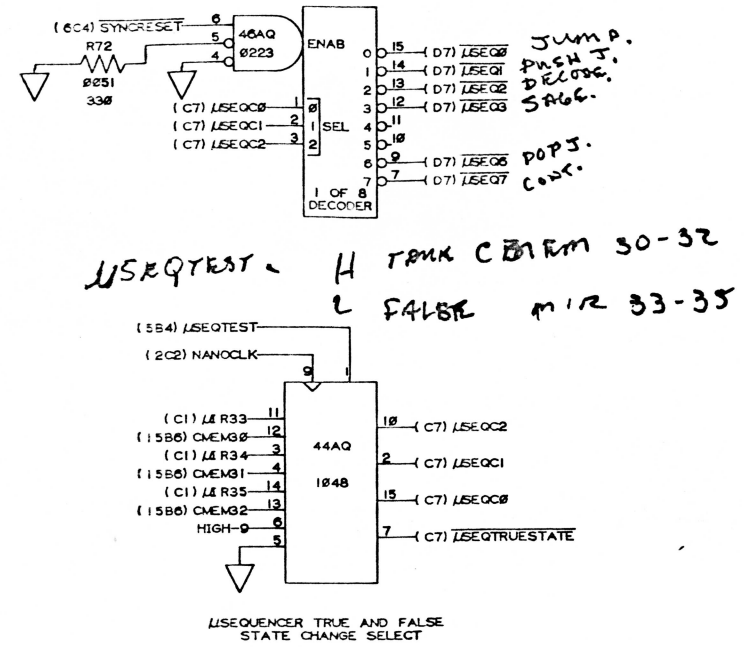 (6C4) SYNCRESET 6
R72
5
4
46AQ
0223
0051
330
ENAB
(C7) µSEQC0 1 0
(C7) µSEQC1 2 1
(C7) µSEQC2 3 2
SEL
0 15 (D7) µSEQ0 JUMP.
1 14 (D7) µSEQ1 PUSH J.
2 13 (D7) µSEQ2 DECODE.
3 12 (D7) µSEQ3
4 11
5 10
6 9 (D7) µSEQ6 POPJ.
7 7 (D7) µSEQ7 CONT.
1 OF 8
DECODER
µSEQTEST. H CMEM 30-32
L FALSE MIR 33-35
(5B4) µSEQTEST
(2C2) NANOCLK
9 1
(C1) µIR33 11
(15B6) CMEM30 12
(C1) µIR34 3
(15B6) CMEM31 4
(C1) µIR35 14
(15B6) CMEM32 13
HIGH-9 6
5
44AQ
1048
10 (C7) µSEQC2
2 (C7) µSEQC1
15 (C7) µSEQC0
7 (C7) µSEQTRUESTATE
µSEQUENCER TRUE AND FALSE
STATE CHANGE SELECT